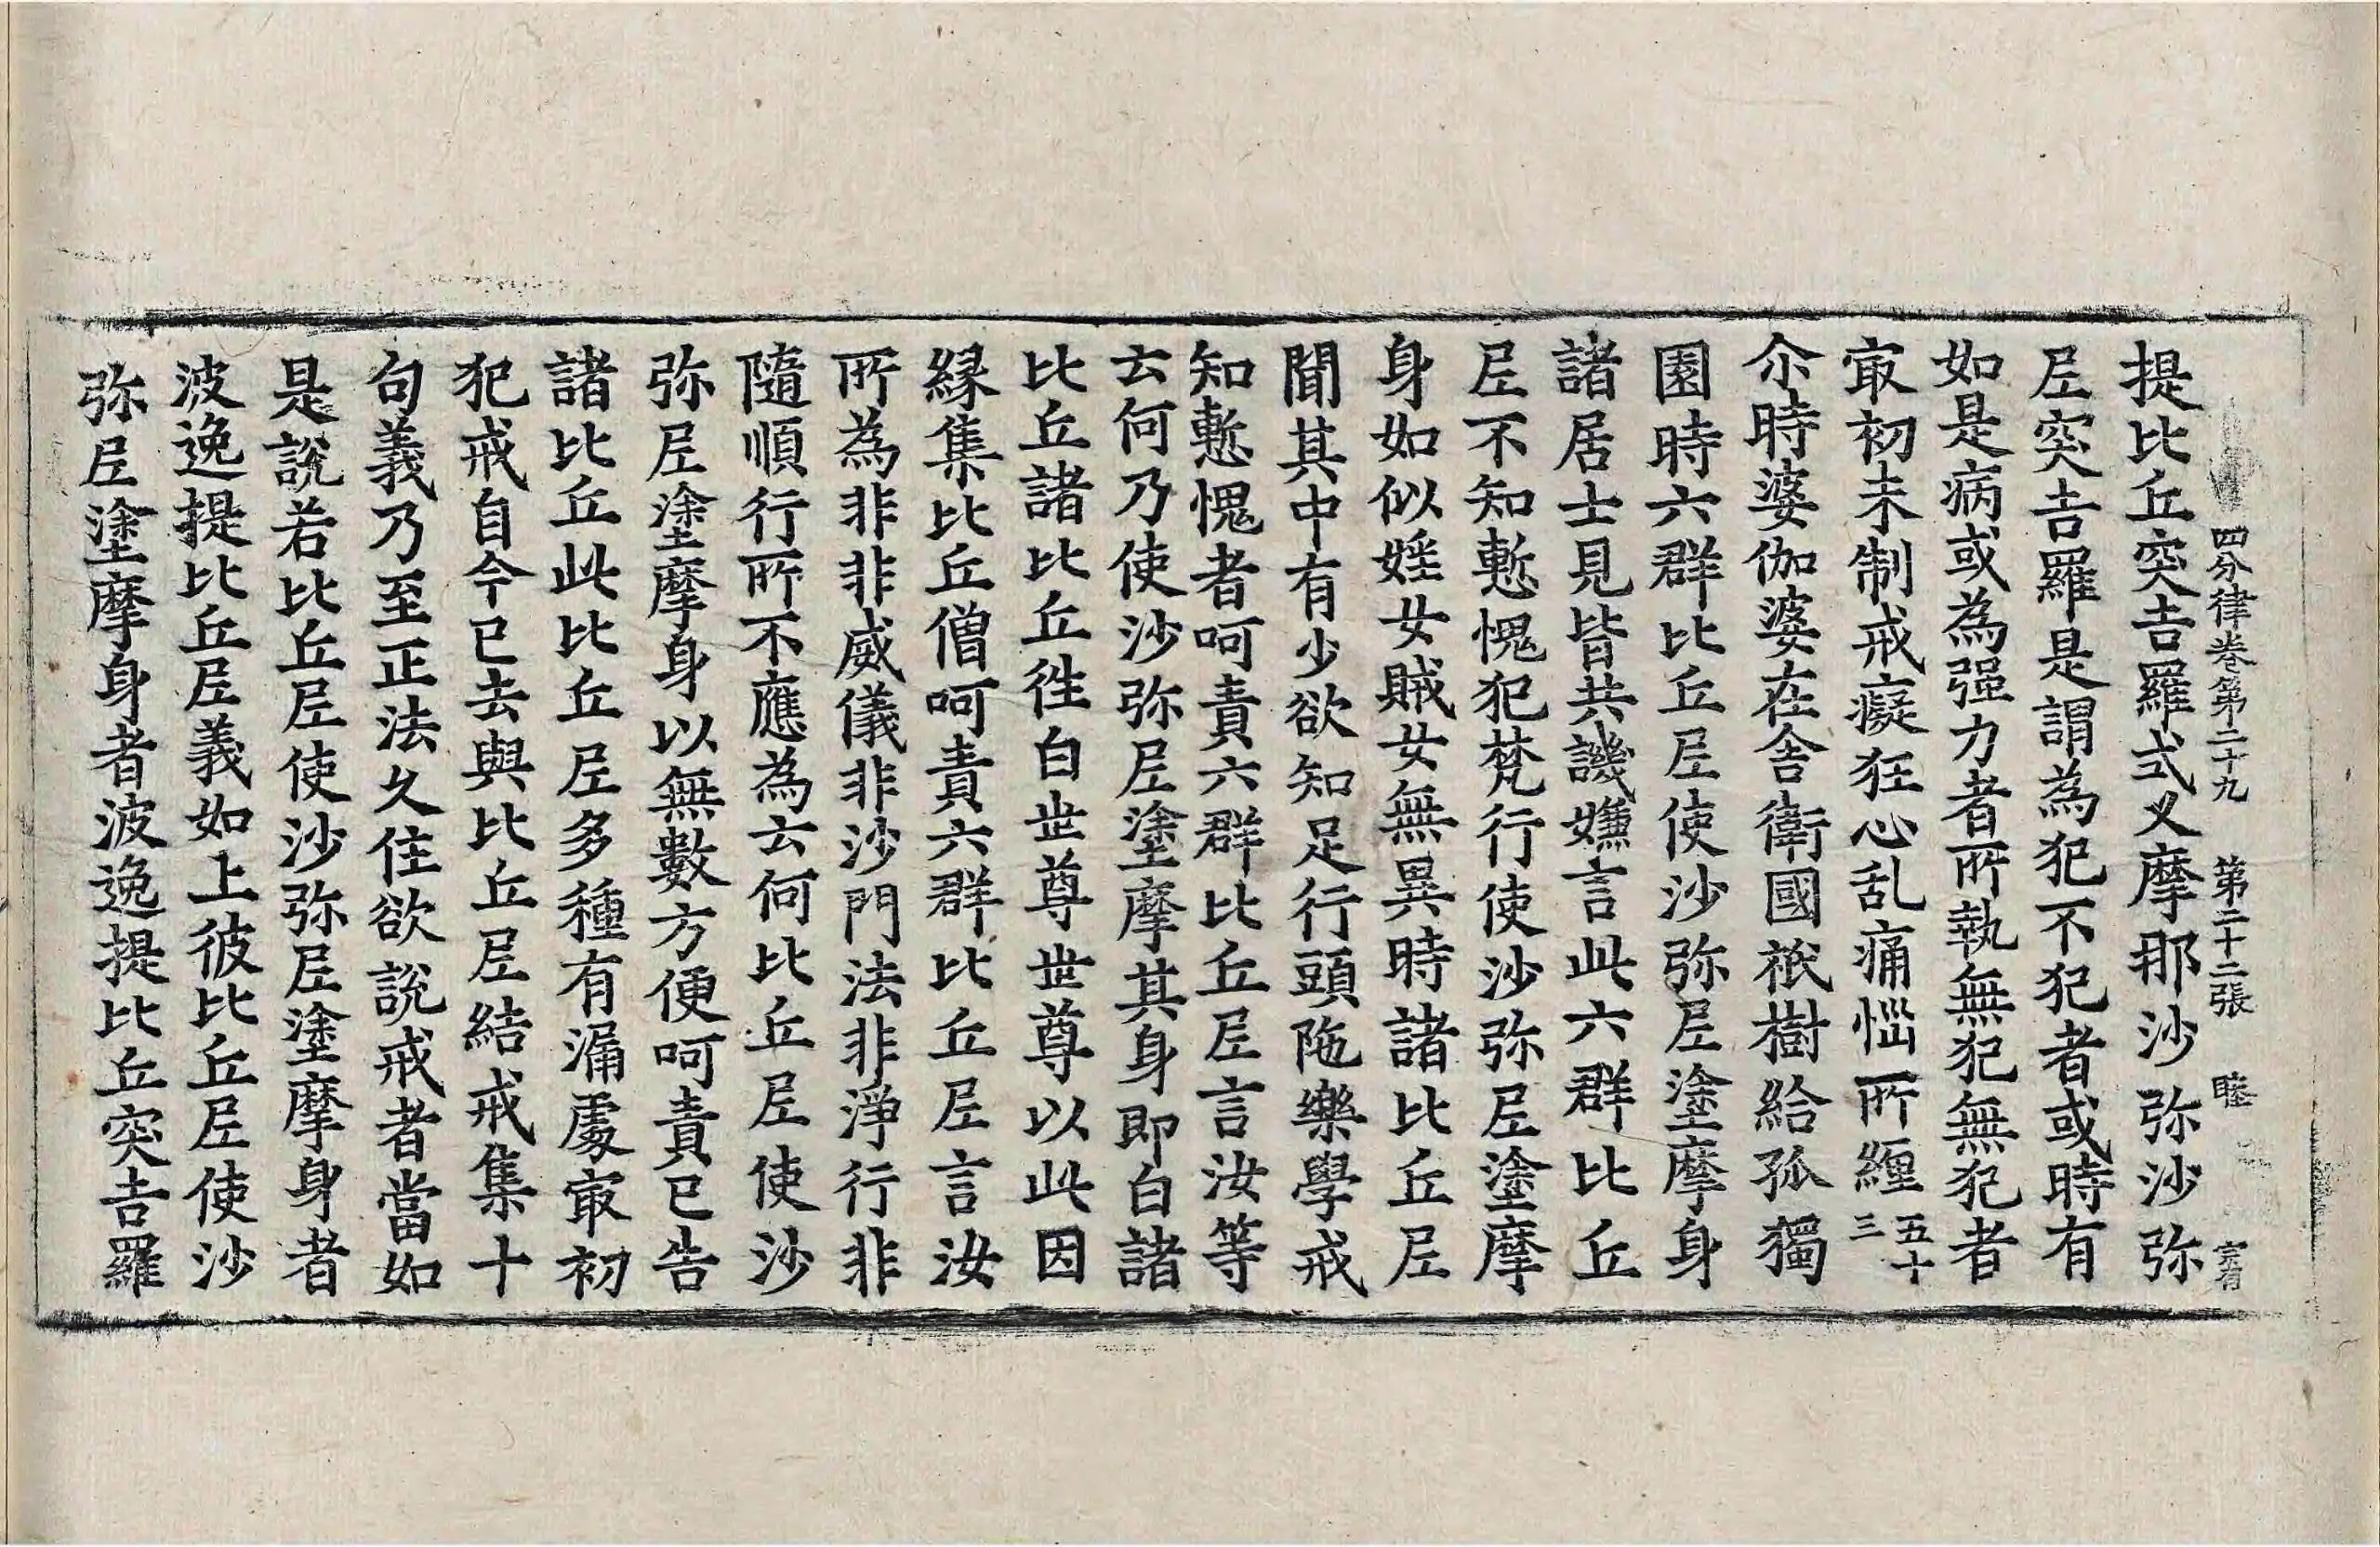 四分律卷第二十九　第二十二張　睦　宗有
提比丘突吉羅式叉摩那沙弥沙弥
尼突吉羅是謂為犯不犯者或時有
如是病或為强力者所執無犯無犯者
㝡初未制戒癡狂心乱痛惱所纏五十三
尒時婆伽婆在舍衛國祇樹給孤獨
園時六群比丘尼使沙弥尼塗摩身
諸居士見皆共譏嫌言此六群比丘
尼不知慙愧犯梵行使沙弥尼塗摩
身如似婬女賊女無異時諸比丘尼
聞其中有少欲知足行頭陁樂學戒
知慙愧者呵責六群比丘尼言汝等
云何乃使沙弥尼塗摩其身即白諸
比丘諸比丘徃白世尊世尊以此因
縁集比丘僧呵責六群比丘尼言汝
所為非非威儀非沙門法非淨行非
隨順行所不應為云何比丘尼使沙
弥尼塗摩身以無數方便呵責已告
諸比丘此比丘尼多種有漏處㝡初
犯戒自今已去與比丘尼結戒集十
句義乃至正法久住欲說戒者當如
是說若比丘尼使沙弥尼塗摩身者
波逸提比丘尼義如上彼比丘尼使沙
弥尼塗摩身者波逸提比丘突吉羅